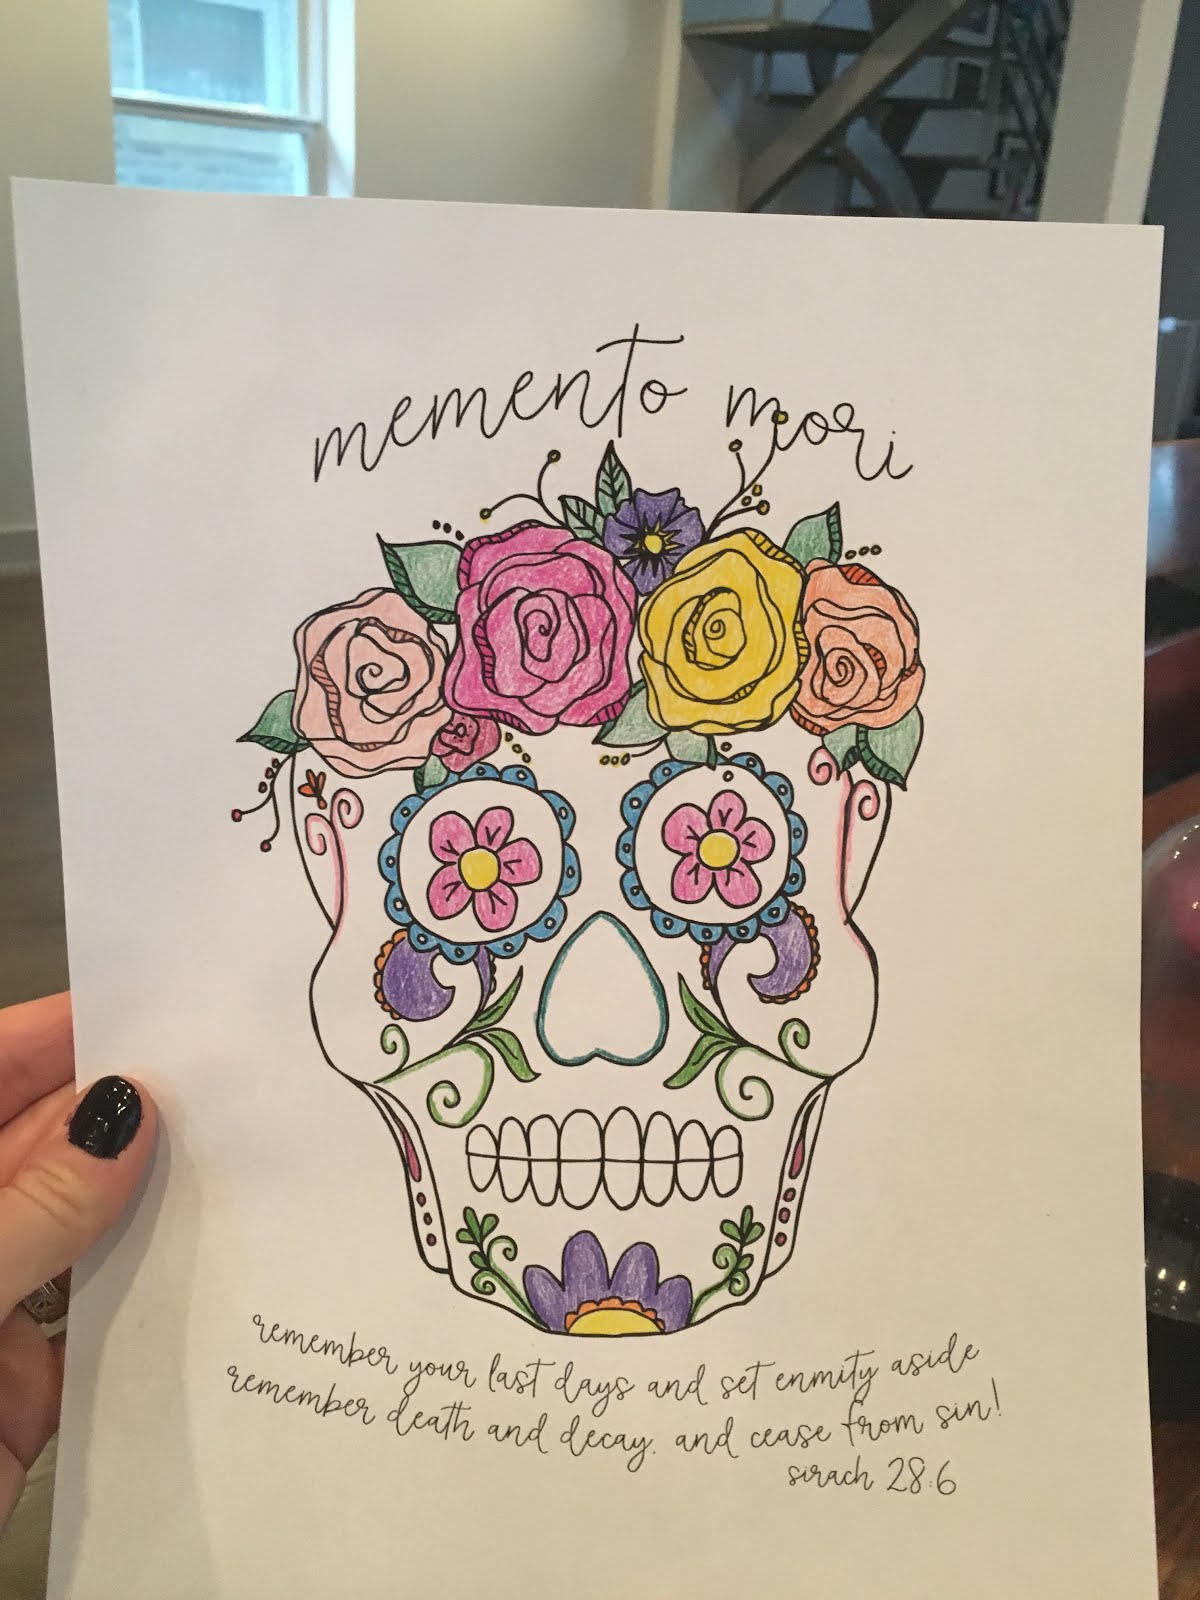 memento mori
remember your last days and set enmity aside
remember death and decay. and cease from sin!
sirach 28:6